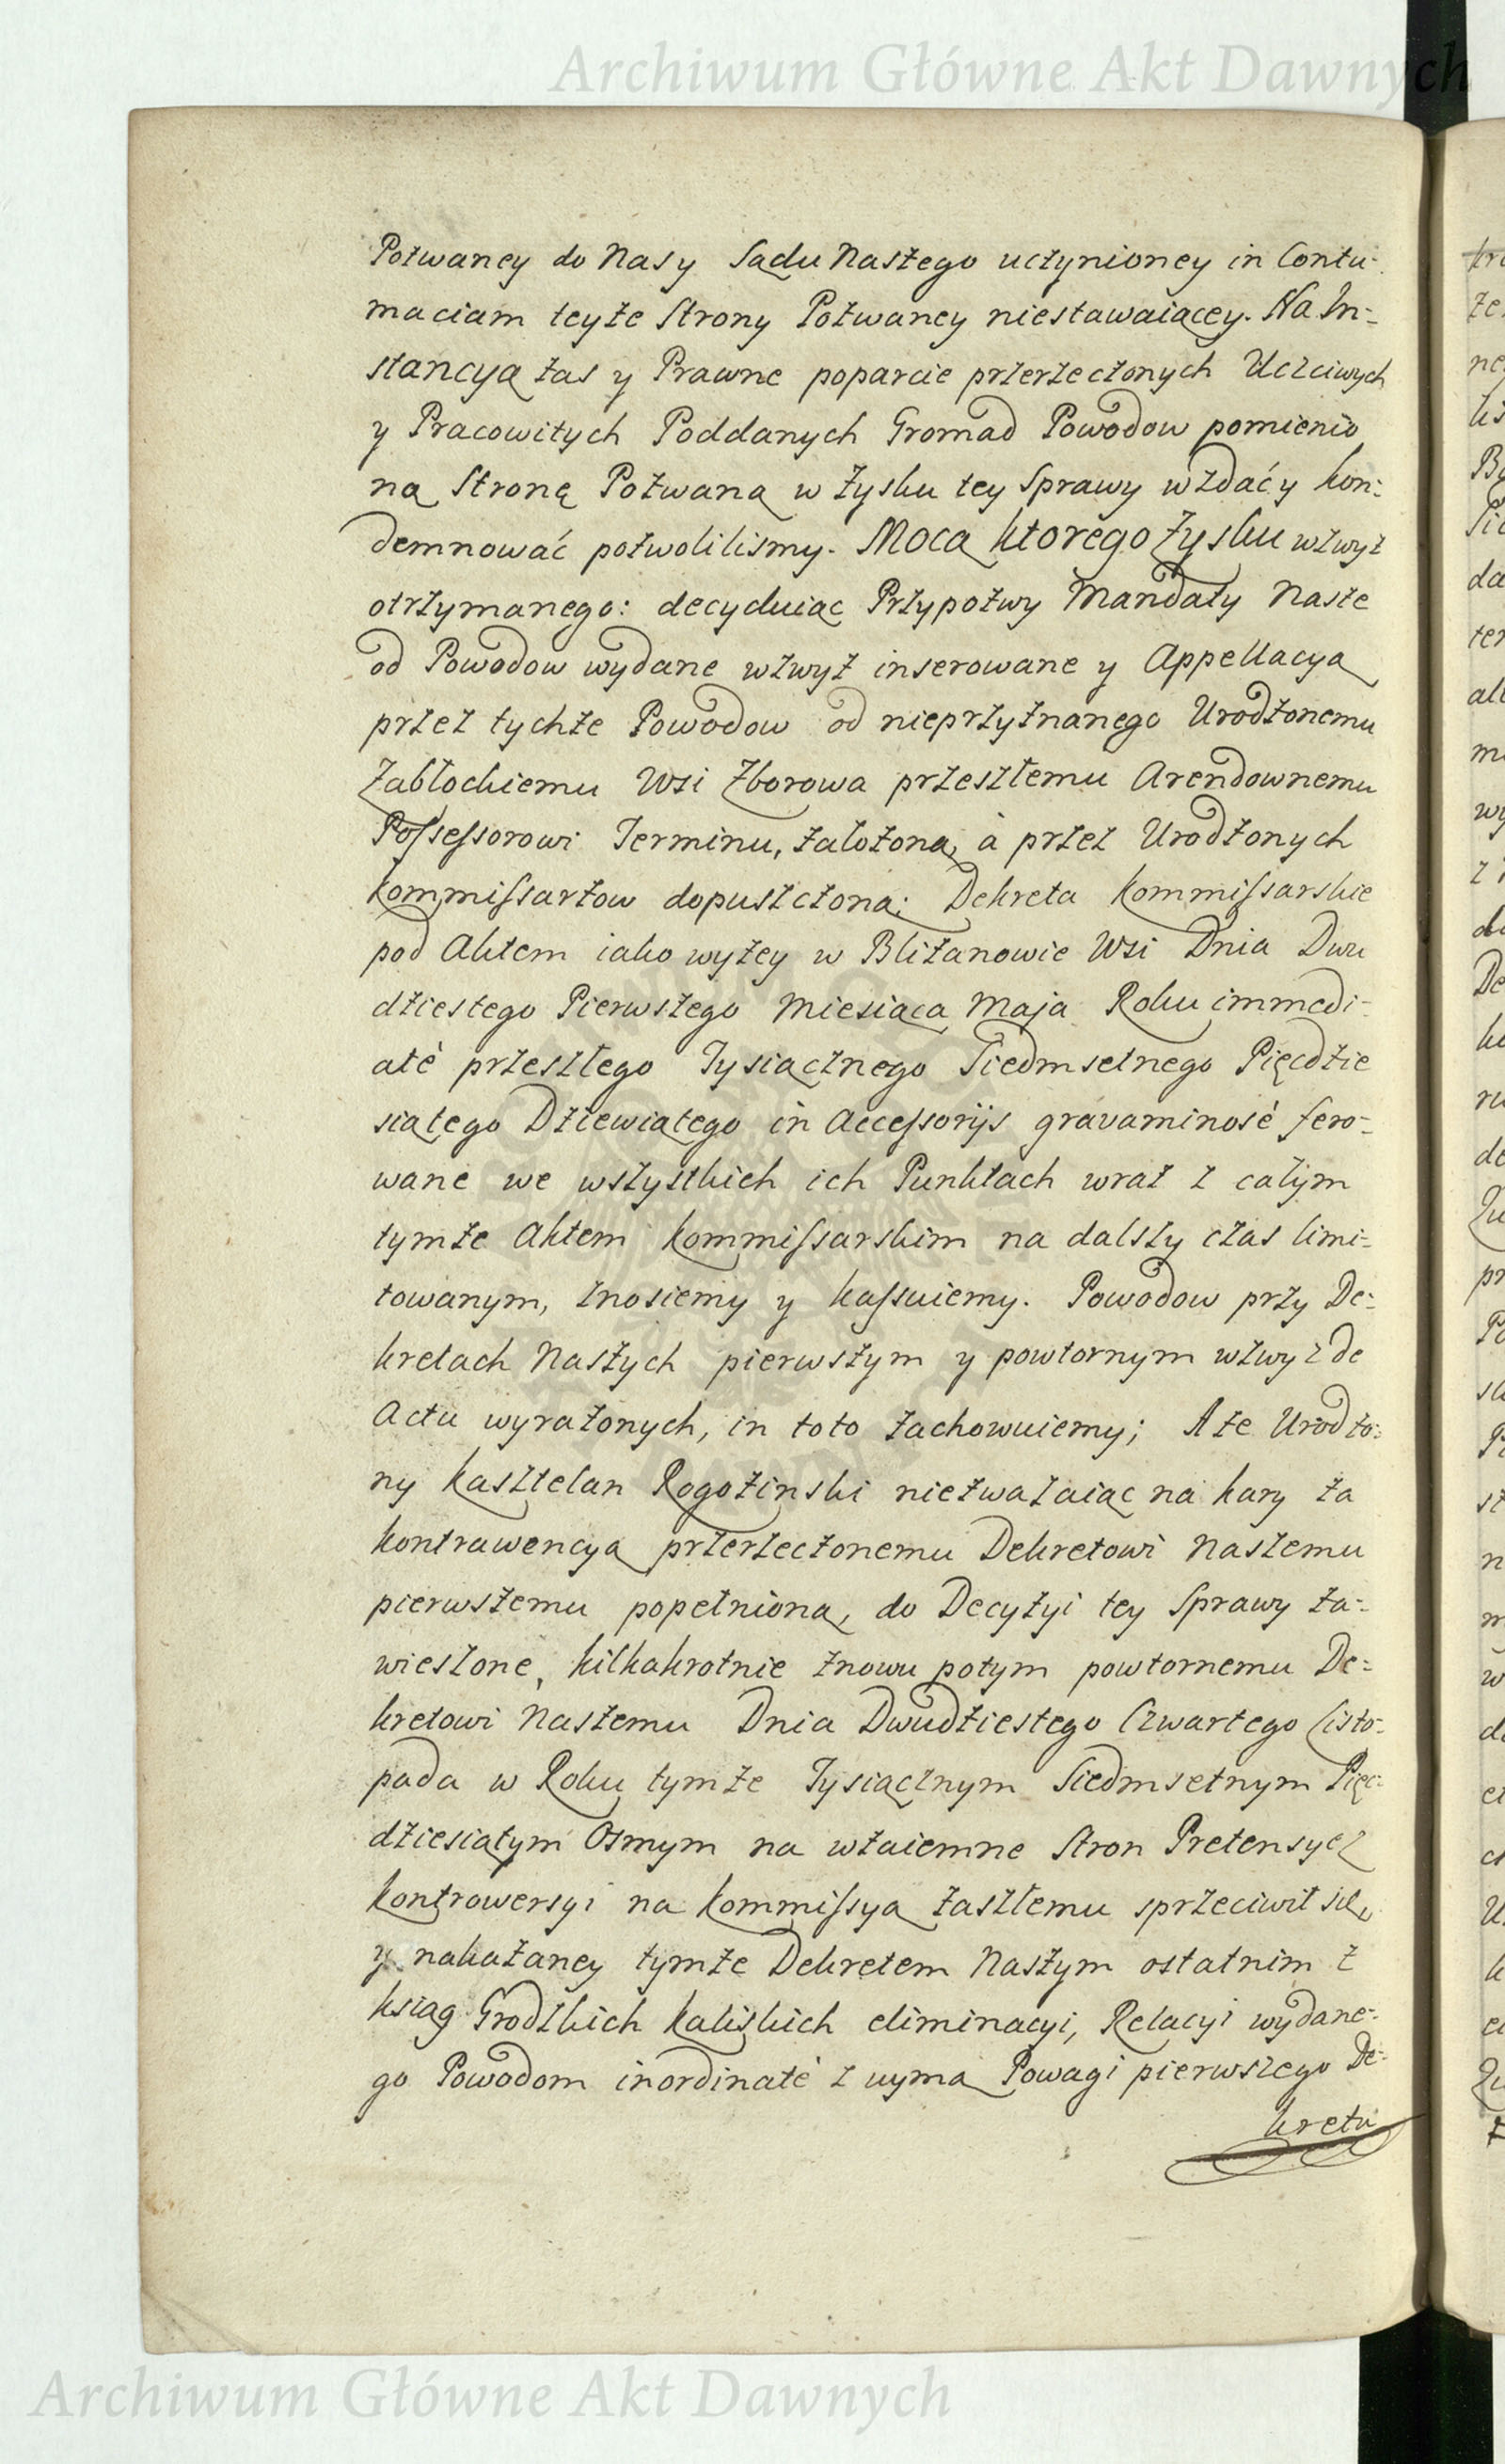 Archiwum Główne Akt Dawnych
Pozwaney do Nas y Sądu Naszego uczynioney in Contu-
maciam teyże Strony Pozwaney niestawaiącey. Na In-
stancyą zas y Prawne poparcie przerzeczonych Uczciwych
y Pracowitych Poddanych Gromad Powodow pomienio
ną Stronę Pozwaną w zysku tey Sprawy wzdać y kon-
demnować pozwolilismy. Mocą ktorego zysku wzwyż
otrzymanego: decyduiąc Przypozwy Mandaty Nasze
od Powodow wydane wzwyż inserowane y Appellacyą
przez tychże Powodow od nieprzyznanego Urodzonemu
Zabłockiemu Wsi Zborowa przeszłemu Arendownemu
Possessorowi Terminu, założoną, à przez Urodzonych
Kommissarzow dopuszczoną: Dekreta Kommissarskie
pod Aktem iako wyżey w Bliżanowie Wsi Dnia Dwu
dziestego Pierwszego Miesiąca Maja Roku immedi-
atè przeszłego Tysiącznego Siedmsetnego Pięcdzie
siątego Dziewiątego in Accessorijs gravaminosè fero-
wane we wszystkich ich Punktach wraz z całym
tymże Aktem Kommissarskim na dalszy czas limi-
towanym, znosiemy y kassuiemy. Powodow przy De-
kretach Naszych pierwszym y powtornym wzwyż de
Actu wyrażonych, in toto zachowuiemy; A że Urodzo-
ny Kasztelan Rogozinski niezważaiąc na kary za
kontrawencyą przerzeczonemu Dekretowi Naszemu
pierwszemu popełnioną, do Decyzyi tey Sprawy za-
wieszone, kilkakrotnie znowu potym powtornemu De-
kretowi Naszemu Dnia Dwudziestego Czwartego Listo-
pada w Roku tymże Tysiącznym Siedmsetnym Pięc-
dziesiątym Osmym na wzaiemne Stron Pretensye
kontrowersyi na Kommissyą zaszłemu sprzeciwił się,
y nakazaney tymże Dekretem Naszym ostatnim z
ksiąg Grodzkich Kaliskich eliminacyi, Relacyi wydane-
go Powodom inordinatè z uymą Powagi pierwszego De-
kretu
Archiwum Główne Akt Dawnych